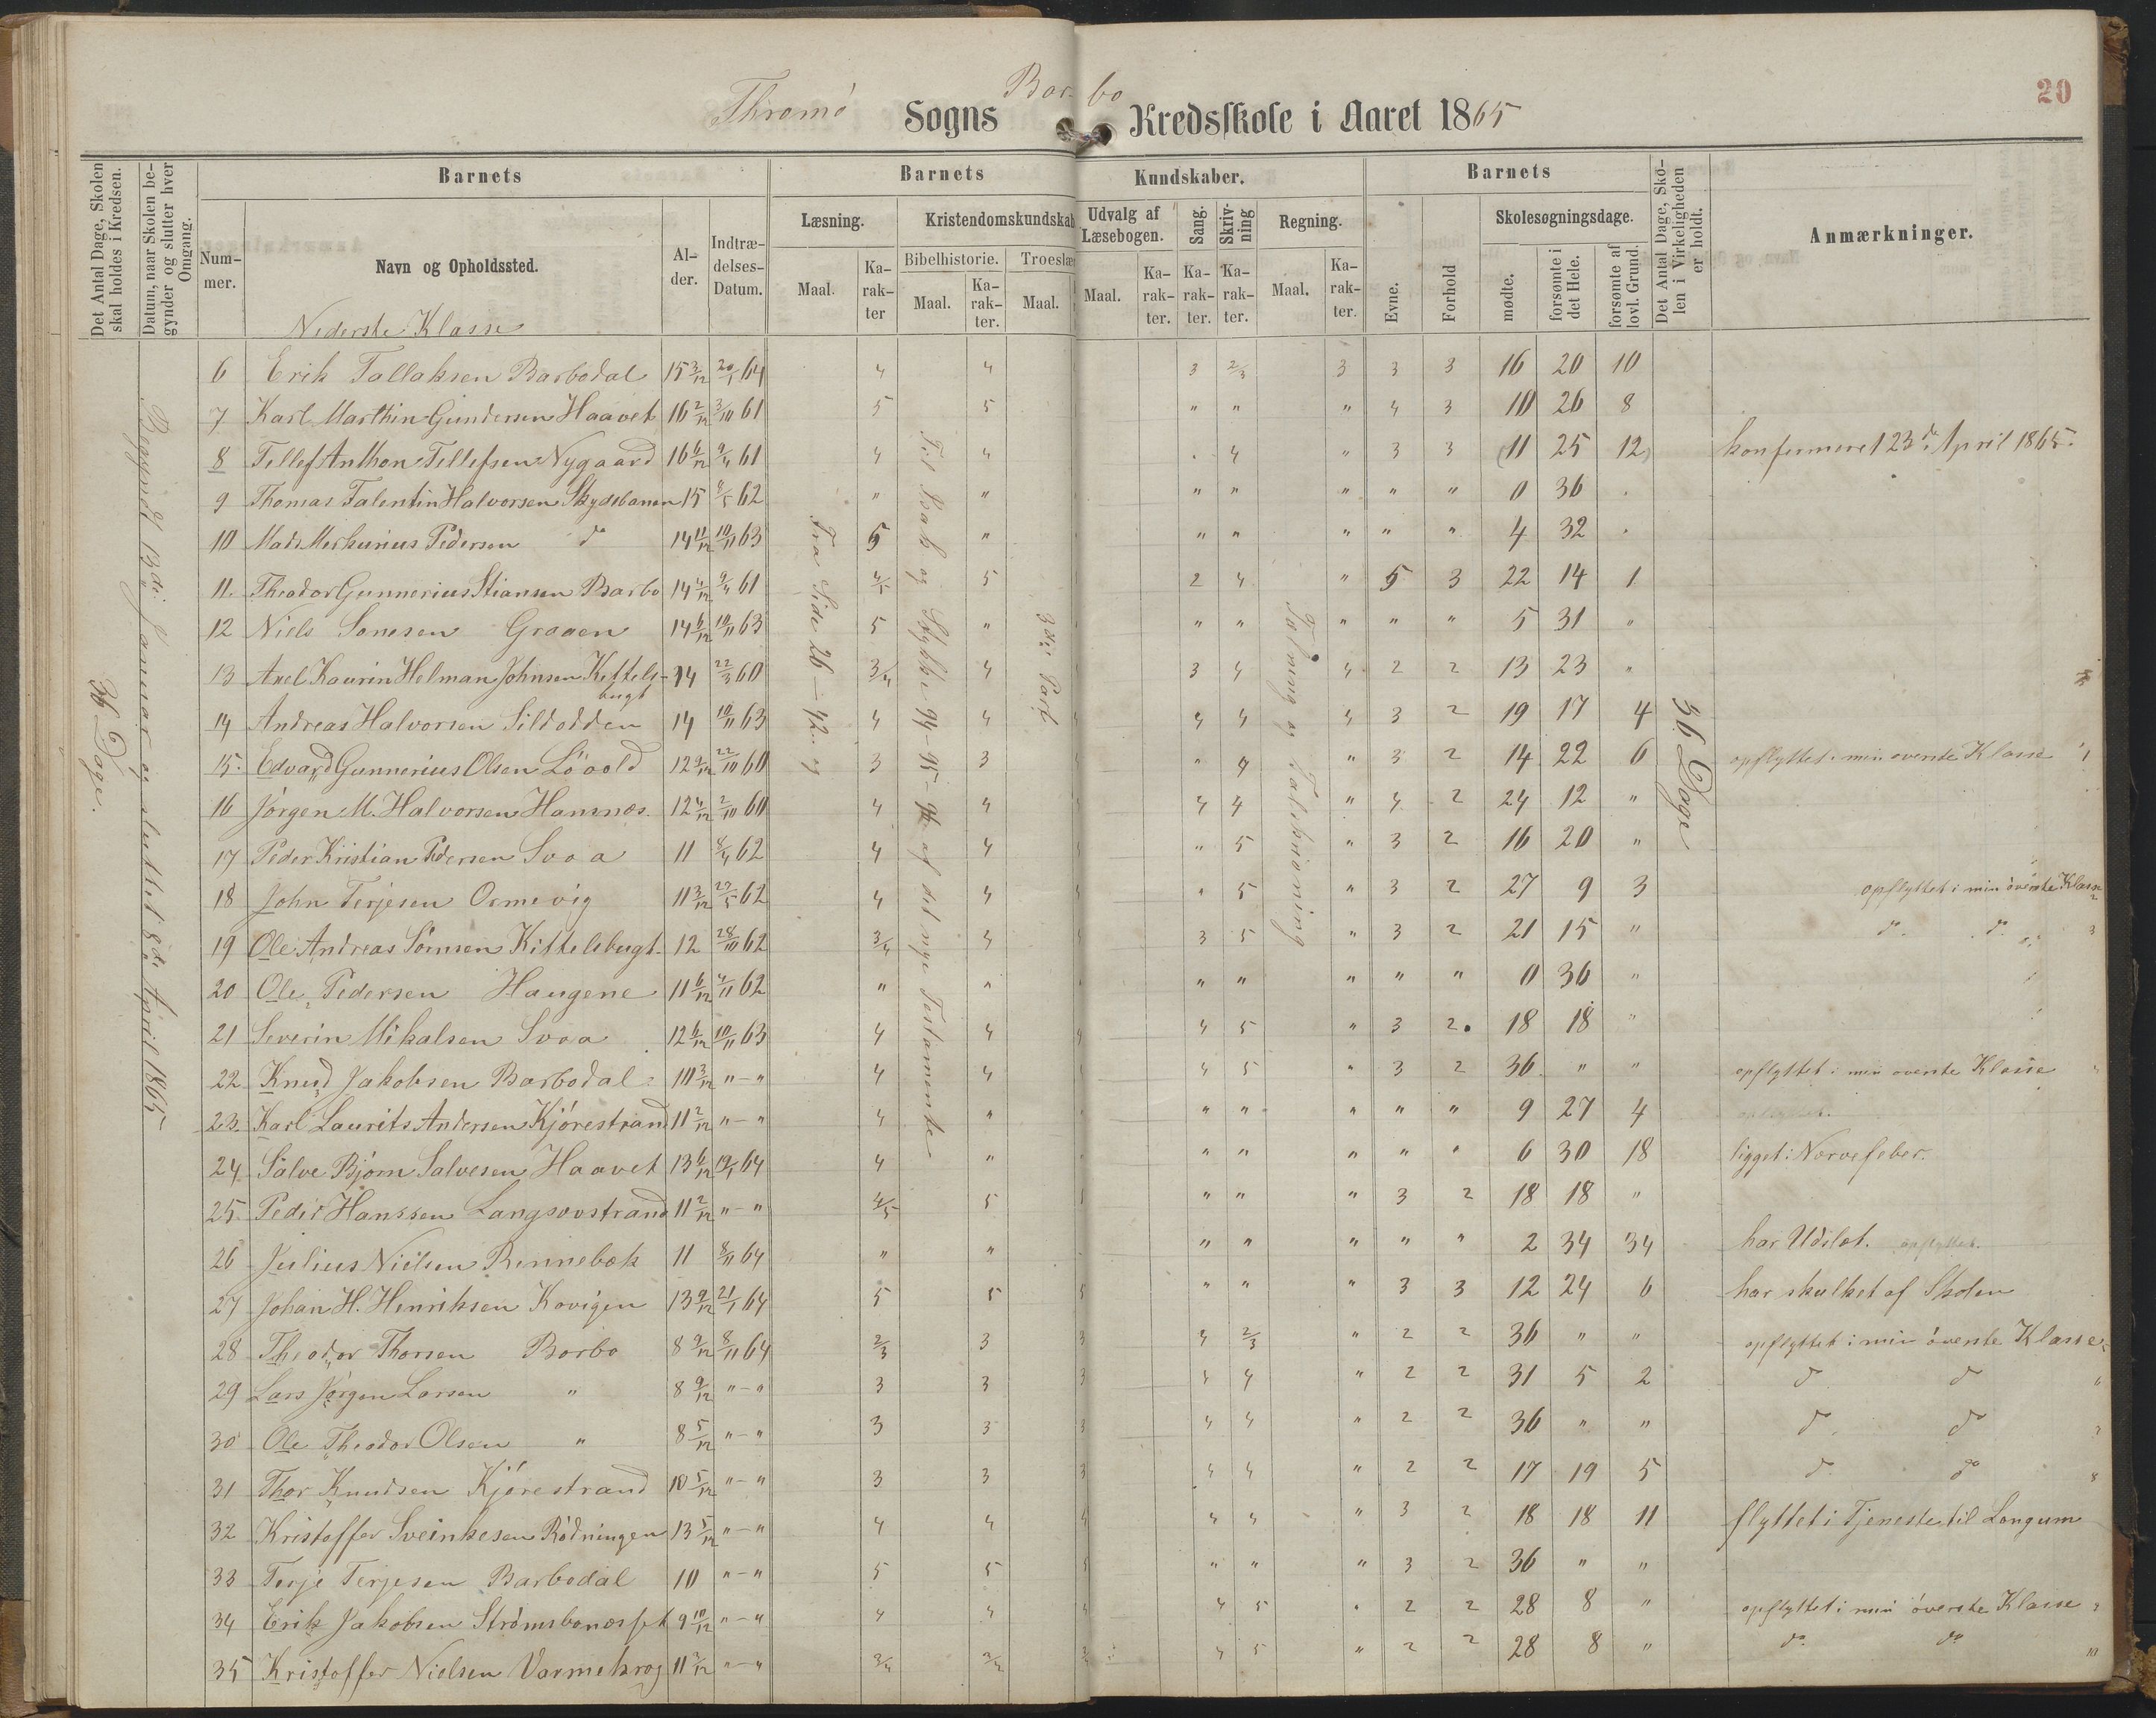 Thromø Sogns Barbo Kredsskole i Aaret 1865
20
Det Antal Dage, Skolen skal holdes i Kredsen.
Datum, naar Skolen begynder og slutter hver Omgang.
Barnets
Barnets Kundskaber.
Barnets
Det Antal Dage, Skolen i Virkeligheden er holdt.
Anmærkninger.
Nummer.
Navn og Opholdssted.
Alder.
Indtrædelses-Datum.
Læsning.
Kristendomskundskab
Udvalg af Læsebogen.
Sang.
Skrivning
Regning.
Evne.
Forhold
Skolesøgningsdage.
Bibelhistorie.
Troeslære
Maal.
Karakter
Maal.
Karakter.
Maal.
Maal.
Karakter.
Karakter.
Karakter.
Maal.
Karakter.
mødte.
forsømte i det Hele.
forsømte af lovl. Grund.
Nederste Klasse
36 Dage.
Begyndt 13de Januar og sluttet 8de April 1865
Fra Side 26 - 42 og
Til Bak og Stykke 94-95-96 af det nye Testamente
3die Part
Tælning og Talskrivning
36 Dage
6 Erik Tallaksen Barbodal 15 3/12 20/1 64 4 4 3 2/3 3 3 3 16 20 10
7 Karl Marthin Gundersen Haavet 16 2/12 3/10 61 5 5 " " " 4 3 10 26 8
8 Tellef Anthon Tellefsen Nygaard 16 6/12 9/4 61 4 4 . 4 " 3 3 (11 25 12) konfirmeret 23de April 1865.
9 Thomas Talentin Halvorsen Skydebanen 15 9/5 62 " " " " " " " 0 36 .
10 Mads Merkurius Pedersen do 14 11/12 10/11 63 5 " " " " " " 4 32 .
11. Theodor Gunnerius Stiansen Barbo 14 4/12 9/4 61 4/5 5 2 4 " 5 3 22 14 1
12 Niels Sonesen Graaen 14 6/12 10/11 63 5 " " " " " " 5 31 "
13 Axel Kaurin Helman Johnsen Kittelsbugt 14 22/3 60 3/4 4 3 4 4 2 2 13 23 "
14 Andreas Halvorsen Sildodden 14 10/11 63 4 4 4 4 4 3 2 19 17 4
15. Edvard Gunnerius Olsen Lövold 12 9/12 22/10 60 3 3 " 4 " 3 2 14 22 6 opflyttet i min øverste Klasse 1
16 Jørgen M. Halvorsen Hamnæs. 12 4/12 2/10 60 4 4 4 4 " 4 2 24 12 "
17 Peder Kristian Pedersen Svoa 11 8/4 62 4 4 " 5 " 3 2 16 20 "
18 John Terjesen Ormevig 11 3/12 27/5 62 4 4 " 5 " 3 2 27 9 3 opflyttet i min øverste Klasse 2
19 Ole Andreas Sörnsen Kittelsbugt. 12 28/10 62 3/4 4 3 5 " 3 2 21 15 " do do 3
20 Ole Pedersen Haugene 11 6/12 4/11 62 " " " " " " " 0 36 "
21 Severin Mikalsen Svoa 12 6/12 10/11 63 4 4 4 4 5 " 3 2. 18 18 "
22 Knud Jakobsen Barbodal 10 3/12 "-" 4 4 4 5 " 3 2 36 " " opflyttet i min øverste Klasse
23. Karl Laurits Andersen Kjörestrand 11 2/12 "-" 4 " " " " " " 9 27 4
24 Salve Bjørn Salvesen Haavet 13 6/12 19/1 64 4 " " " " " " 6 30 18 ligget i Nervefeber.
25. Peder Hanssen Langsævstrand 11 2/12 "-" 4/5 5 " " " 3 2 18 18 "
26 Julius Nielsen Rennebæk 11 8/11 64 " " " " " " " 2 34 34 har Udslet. opflyttet.
27 Johan H. Henriksen Kovigen 13 9/12 21/1 64 5 5 5 " " " 3 3 12 24 6 har skulket af Skolen
28 Theodor Thorsen Barbo 8 9/12 8/11 64 2/3 3 3 4 2/3 " 2 2 36 " " opflyttet i min øverste Klasse
29 Lars Jørgen Larsen " 8 9/12 "-" 3 3 3 4 4 " 2 2 31 5 2 do do
30 Ole Theodor Olsen " 8 5/12 "-" 3 3 3 4 4 " 2 2 36 " " do do 7
31 Thor Knudsen Kjörestrand 10 5/12 "-" 3 3 3 4 4 " 2 2 17 19 5 do do 8
32 Kristoffer Sveinkesen Rödningen 13 5/12 "-" 4 4 4 4 4 " 3 2 18 18 11 flyttet i Tjeneste til Longum
33 Terje Terjesen Barbodal 10 "-" 5 5 5 " " " 3 2 36 " "
34 Erik Jakobsen Strömsbonæsset 9 10/12 "-" 4 4 4 4 5 . 2 2 28 8 " opflyttet i min øverste Klasse 9
35 Kristoffer Nielsen Varmekrog 11 3/12 "-" 3/4 3/4 3/4 4 5 " 2 2 28 8 " do do 10